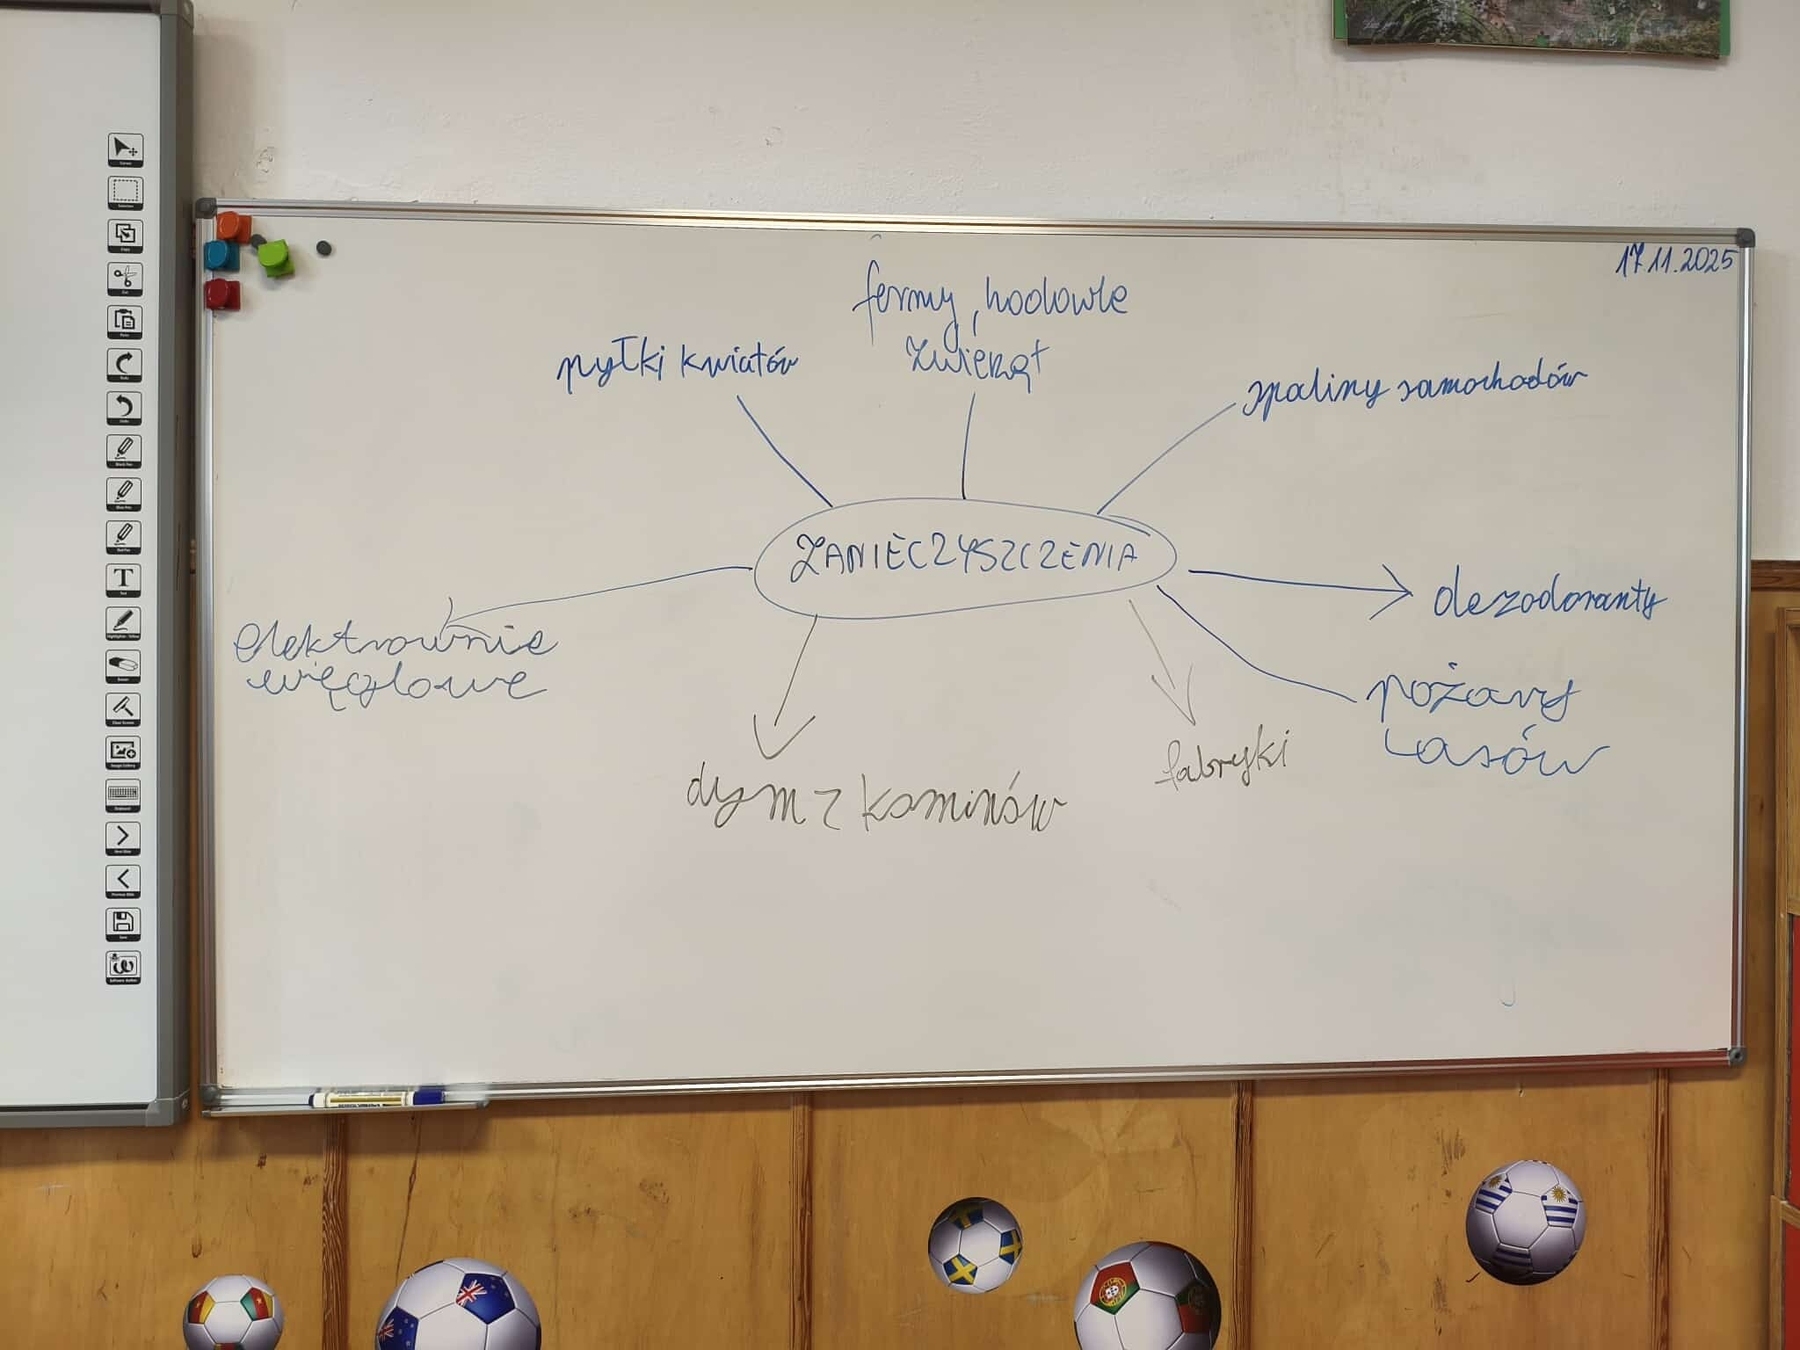 17.11.2025
fermy, hodowle
zwierząt
pyłki kwiatów
spaliny samochodów
ZANIECZYSZCZENIA
dezodoranty
elektrownie
węglowe
pożary
Lasów
fabryki
dym z kominów